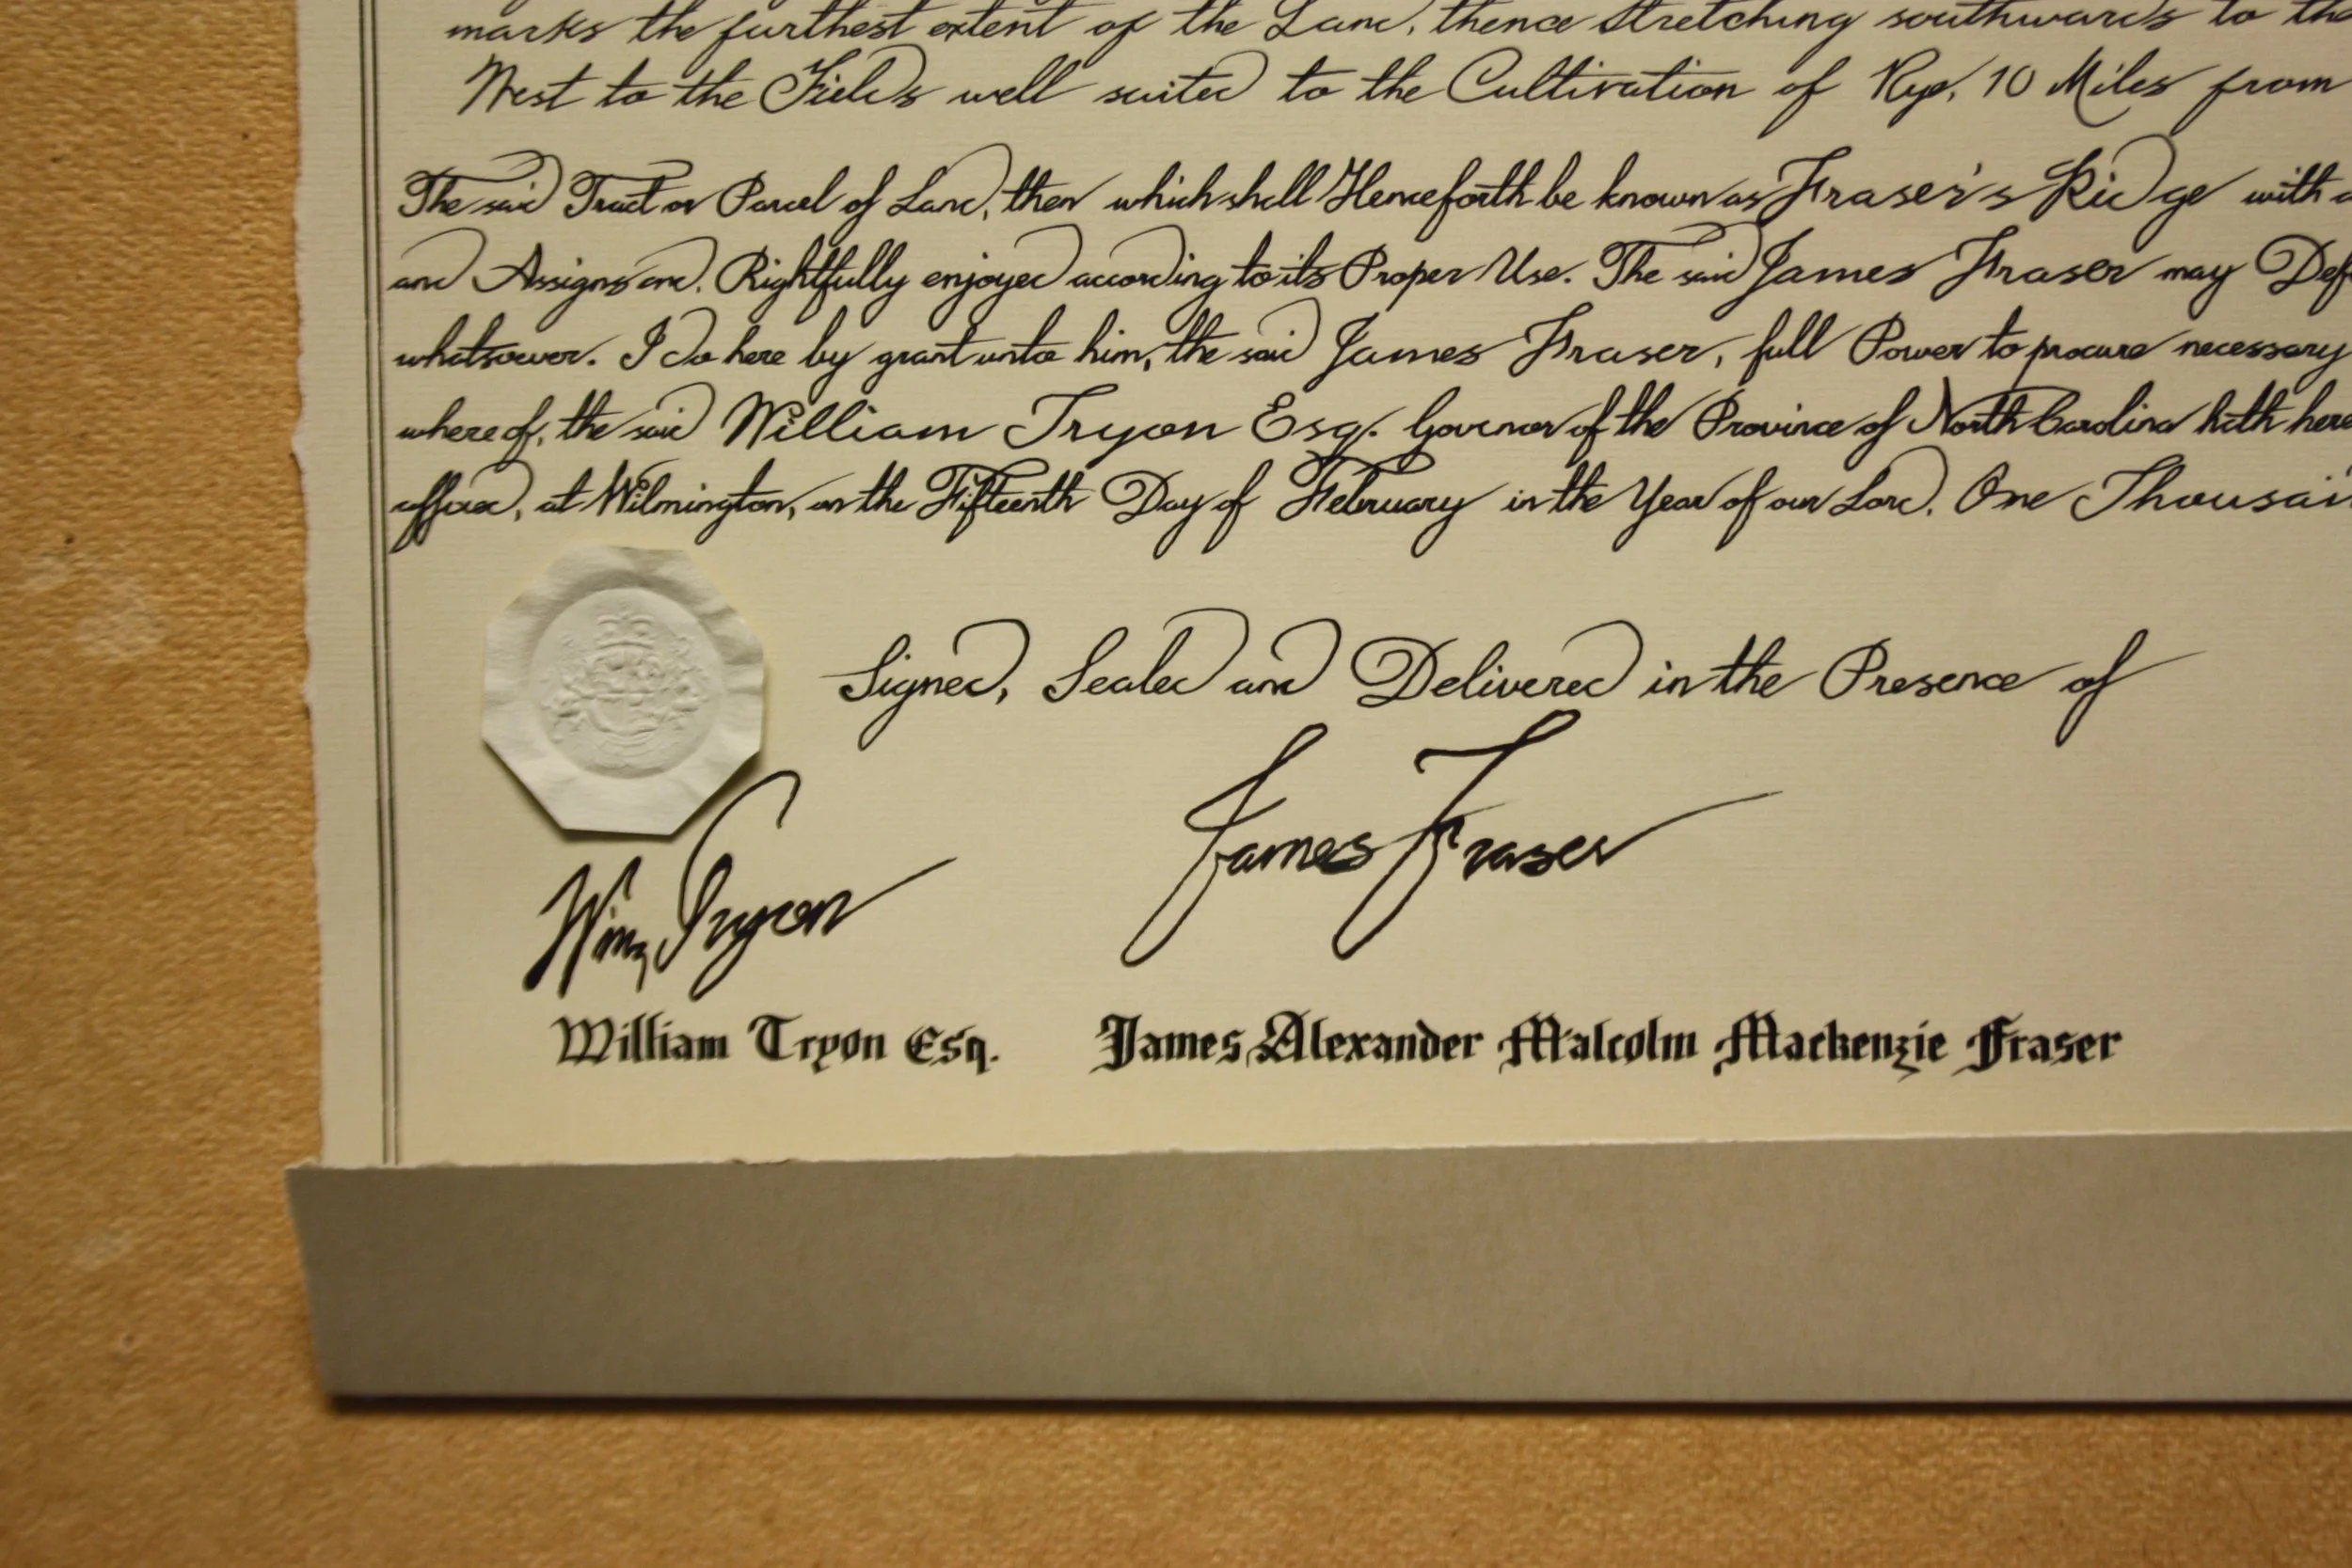 marks the furthest extent of the Land, thence stretching southwards to the
West to the Fields well suited to the Cultivation of Rye, 10 Miles from
The said Tract or Parcel of Land, then which shall Henceforth be known as Fraser's Ridge with a
and Assigns and, Rightfully enjoyed according to its Proper Use. The said James Fraser may Def
whatsoever. I do here by grant unto him, the said James Fraser, full Power to procure necessary
where of, the said William Tryon Esq. Governor of the Province of North Carolina hath here
affixed, at Wilmington, on the Fifteenth Day of February in the Year of our Lord, One Thousan
Signed, Sealed and Delivered in the Presence of
James Fraser
Wm Tryon
William Tryon Esq. James Alexander Malcolm Mackenzie Fraser